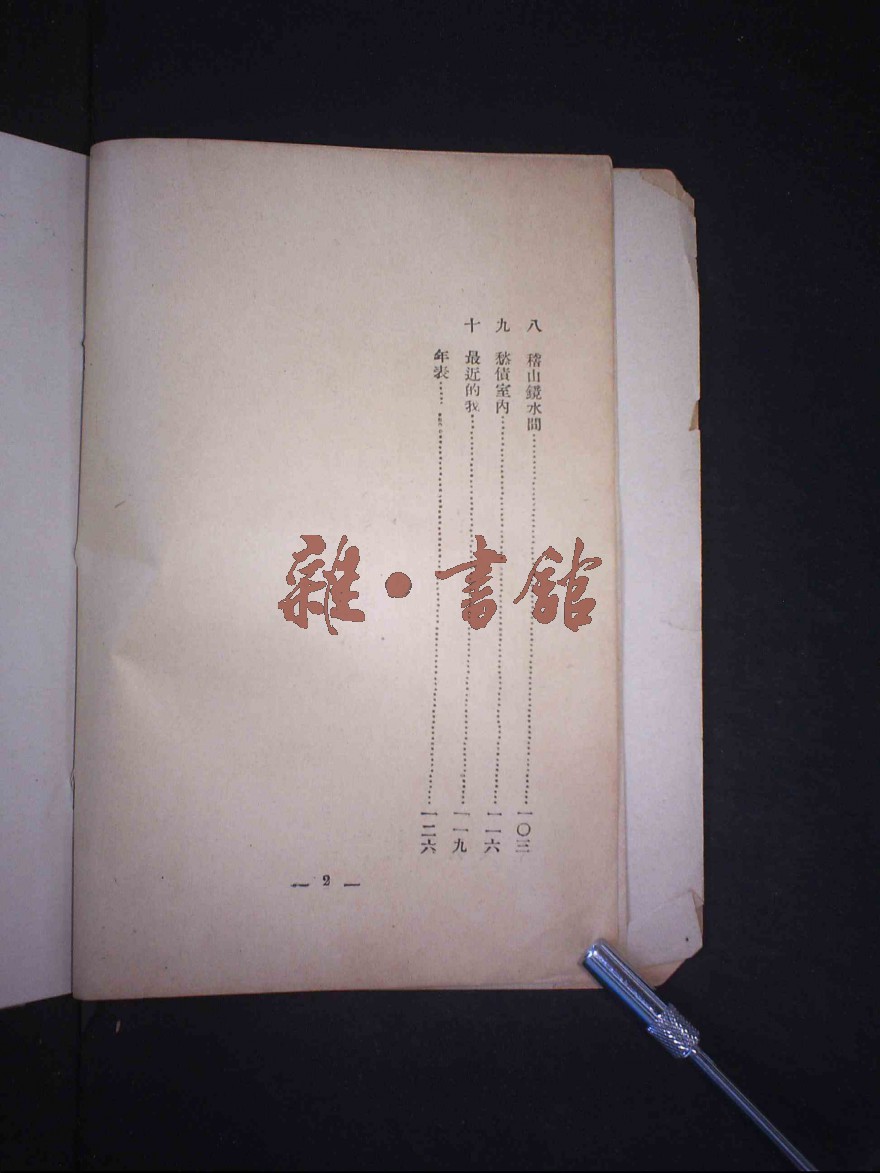 八 稽山鏡水間……一〇三
九 愁債室內……一一六
十 最近的我……一一九
年表……一二六
— 2 —
雜·書館